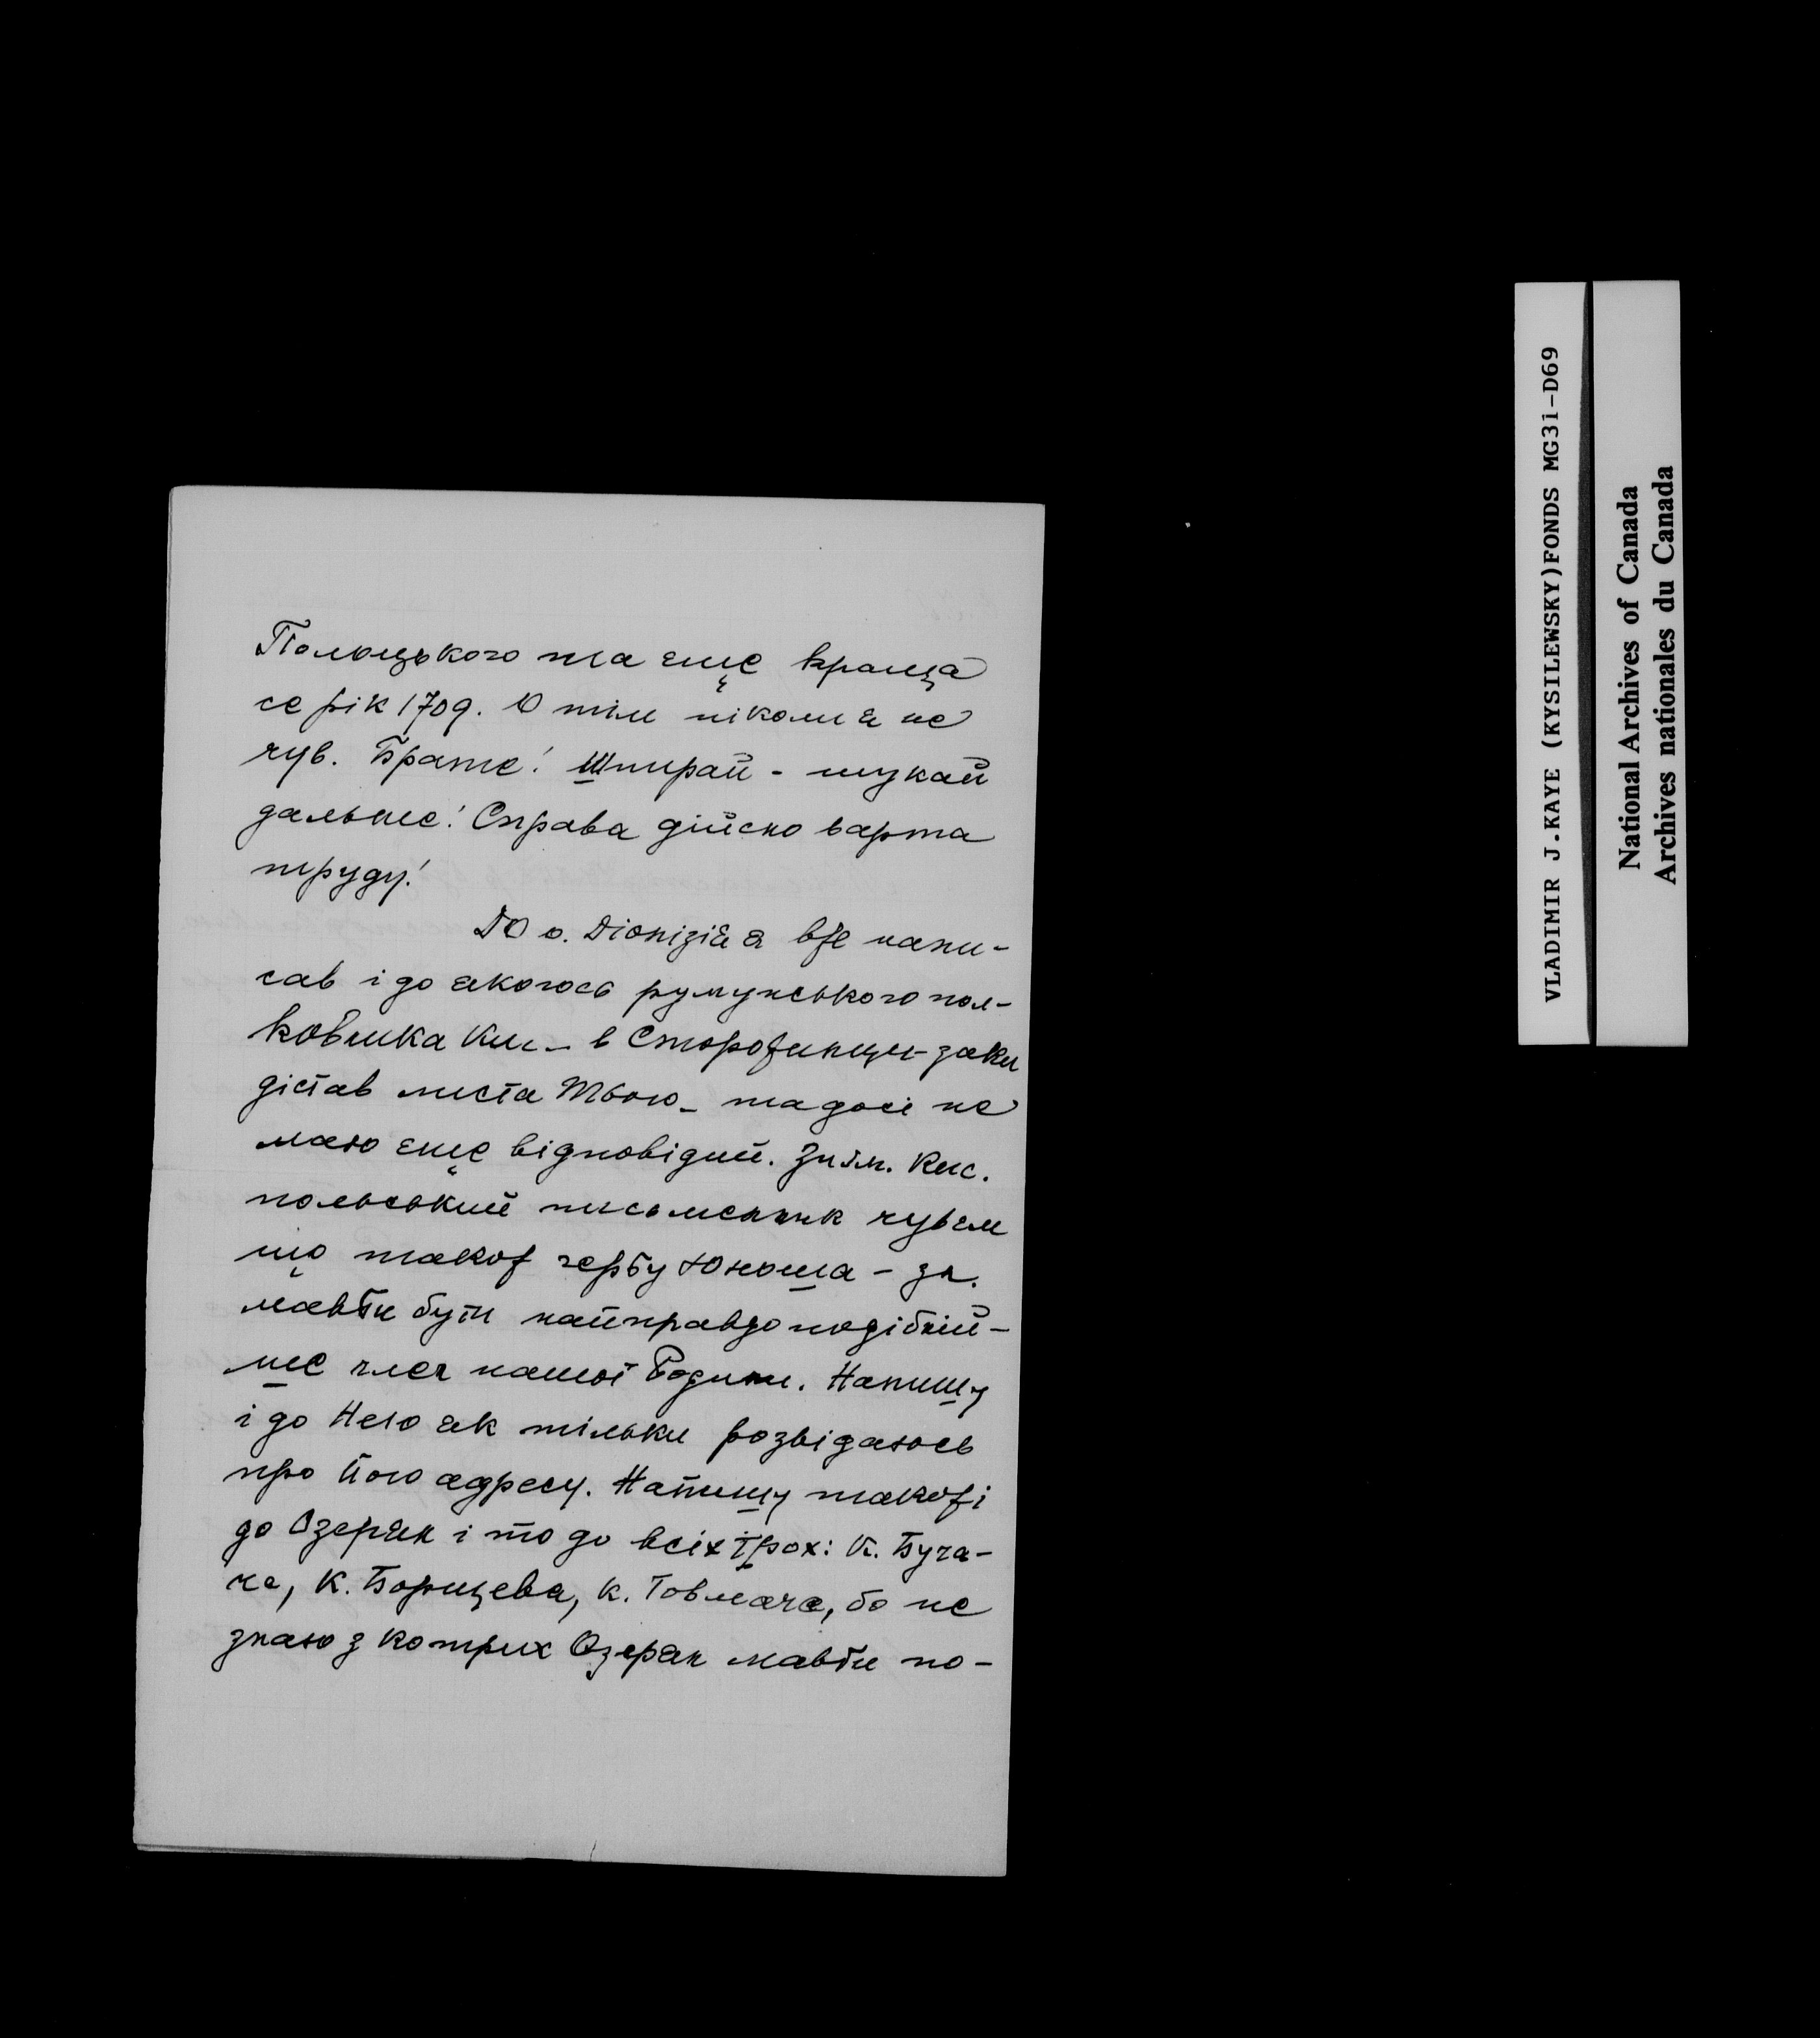 Полоцького та єще краща
се рік 1709. О тім ніколи я не
чув. Брате! Шпирай - шукай
дальше! Справа дійсно варта
труду!
До о. Діонізія я вже напи-
сав і до якогось румунського пол-
ковника Кис_ в Сторожинци - заки
дістав листа Твого_ та досі не
маю єще відповідий. Знам. Кис.
польський письменник чувєм
що також гербу Юноша - зн.
мавби бути найправдоподібній-
ше член нашої Родини. Напишу
і до Него як тілько розвідаюсь
про його адресу. Напишу також і
до Озерян і то до всіх трох: К. Буча-
ча, К. Борщева, К. Товмача, бо не
знаю з котрих Озерян мавби по-
VLADIMIR J.KAYE (KYSILEWSKY)FONDS MG31-D69
National Archives of Canada
Archives nationales du Canada